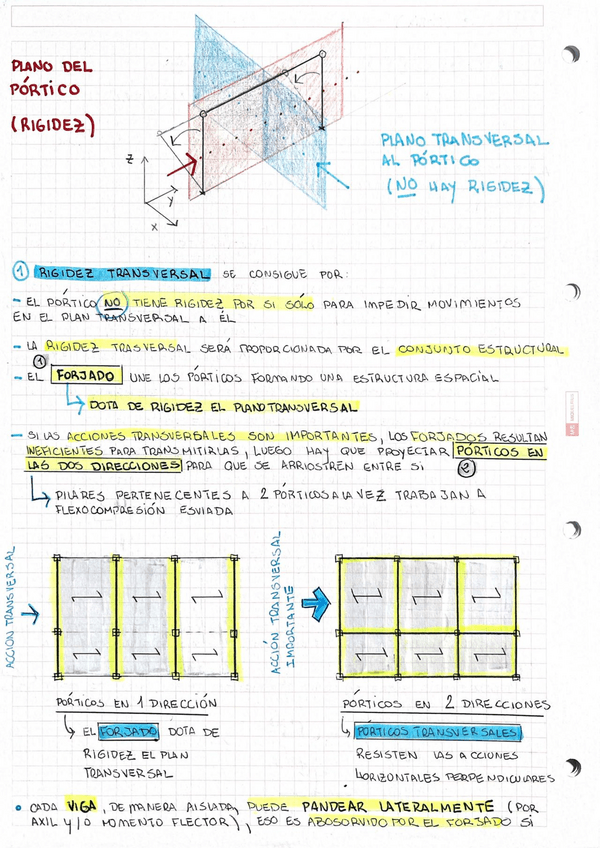 PLANO DEL
PÓRTICO
(RIGIDEZ)
PLANO TRANSVERSAL
AL PÓRTICO
(NO HAY RIGIDEZ)
Z
Y
X
1 RIGIDEZ TRANSVERSAL SE CONSIGUE POR:
- EL PÓRTICO NO TIENE RIGIDEZ POR SI SÓLO PARA IMPEDIR MOVIMIENTOS
EN EL PLAN TRANSVERSAL A ÉL
- LA RIGIDEZ TRASVERSAL SERÁ PROPORCIONADA POR EL CONJUNTO ESTRUCTURAL
1
- EL FORJADO UNE LOS PÓRTICOS FORMANDO UNA ESTRUCTURA ESPACIAL
DOTA DE RIGIDEZ EL PLANO TRANSVERSAL
- SI LAS ACCIONES TRANSVERSALES SON IMPORTANTES, LOS FORJADOS RESULTAN
INEFICIENTES PARA TRANSMITIRLAS, LUEGO HAY QUE PROYECTAR PÓRTICOS EN
LAS DOS DIRECCIONES PARA QUE SE ARRIOSTREN ENTRE SI 2
PILARES PERTENECENTES A 2 PÓRTICOS A LA VEZ TRABAJAN A
FLEXOCOMPRESIÓN ESVIADA
ACCIÓN TRANSVERSAL
ACCIÓN TRANSVERSAL
IMPORTANTE
PÓRTICOS EN 1 DIRECCIÓN
EL FORJADO DOTA DE
RIGIDEZ EL PLAN
TRANSVERSAL
PÓRTICOS EN 2 DIRECCIONES
PÓRTICOS TRANSVERSALES
RESISTEN LAS ACCIONES
HORIZONTALES PERPENDICULARES
• CADA VIGA, DE MANERA AISLADA, PUEDE PANDEAR LATERALMENTE (POR
AXIL Y/O MOMENTO FLECTOR), ESO ES ABOSORVIDO POR EL FORJADO SI